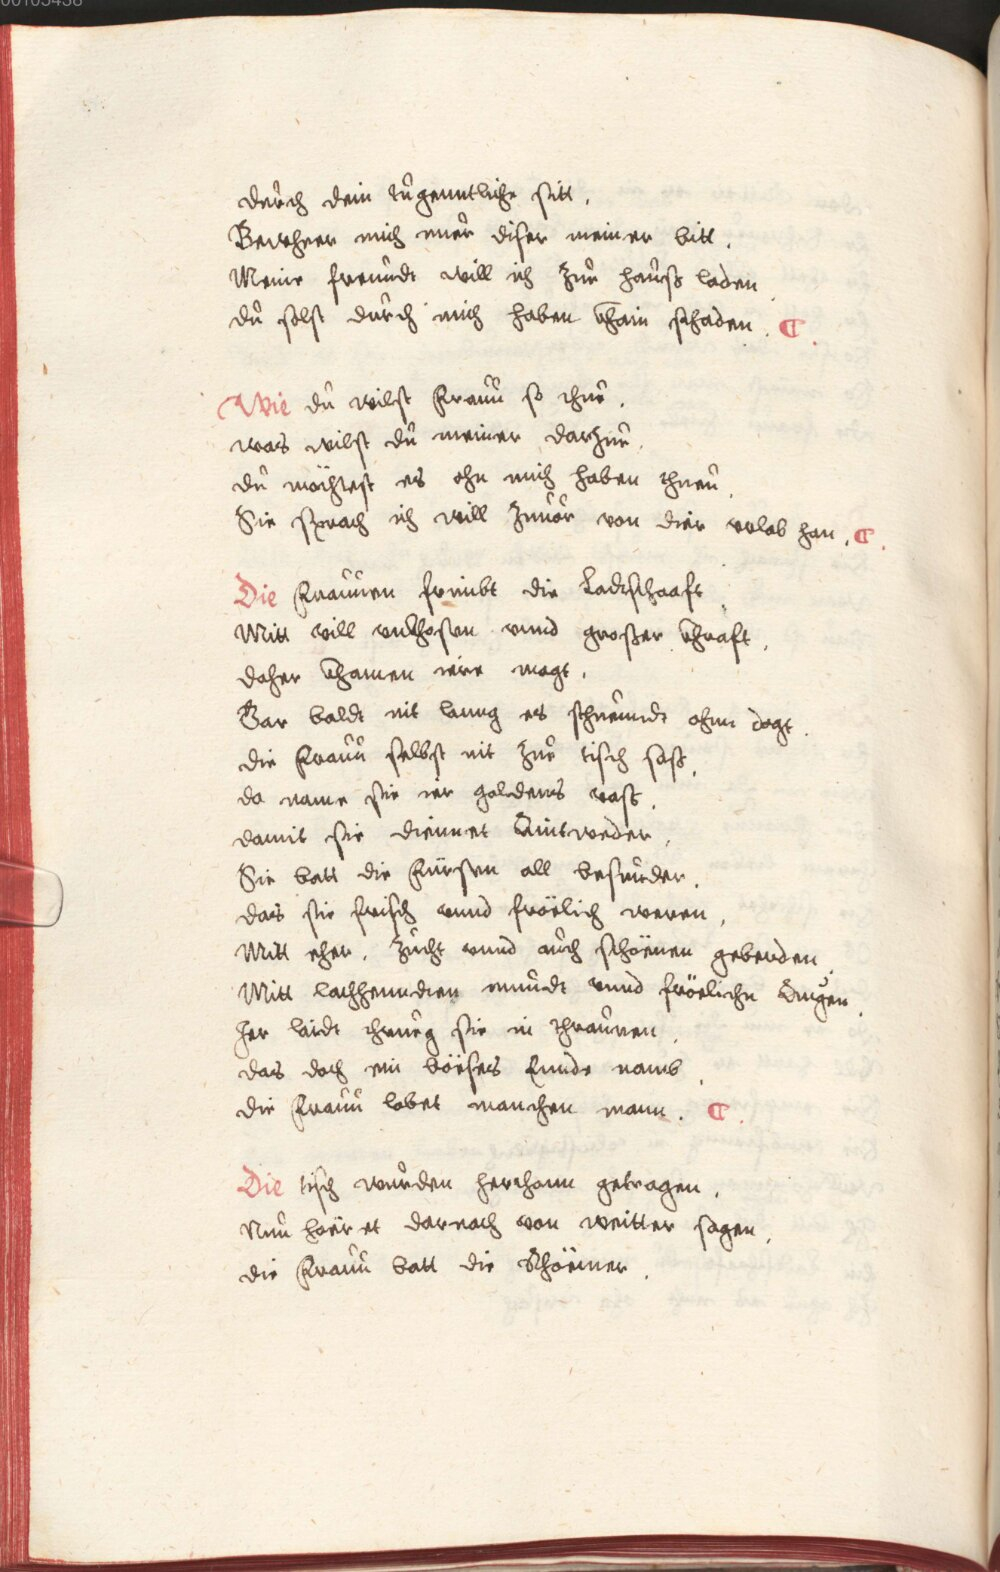 00103438
durch dein tugenntliche sitt.
Bewheer mich nuer diser meiner bitt.
Meine freundt will ich Zur hauß laden
du solst durch mich haben khain schaden.
Wie du wilst Frauu so thue.
was wilst du meiner darzue.
du möchtest es ohn mich haben thuen
Sie sprach ich will Zuuor von dier vrlab han.
Die Frauuen freubt die Ladtschaafft
Mitt vill vnkhosten vnnd großer khrafft.
daher khamen iere magt.
Gar baldt nit lanng es schneundt ohnn dagt.
die Frauu selbst nit Zue tisch saß.
da name sie ier goldens vaß.
damit sie diennet Eintweder.
Sie batt die Fürsten all besunder.
das sie frisch vnnd fröelich weren.
Mitt eher. Zucht vnnd auch schöenen geberden
Mitt lachhenndten mundt vnnd fröeliche Augen.
Ier laidt thrueg sie in thrauren.
das doch ein böeses Ennde namb
die Frauu labet manchen mann.
Die tisch wurden herthann getragen.
Nun höeret darnach von weitter sagen.
die Frauu batt die Khöemer.